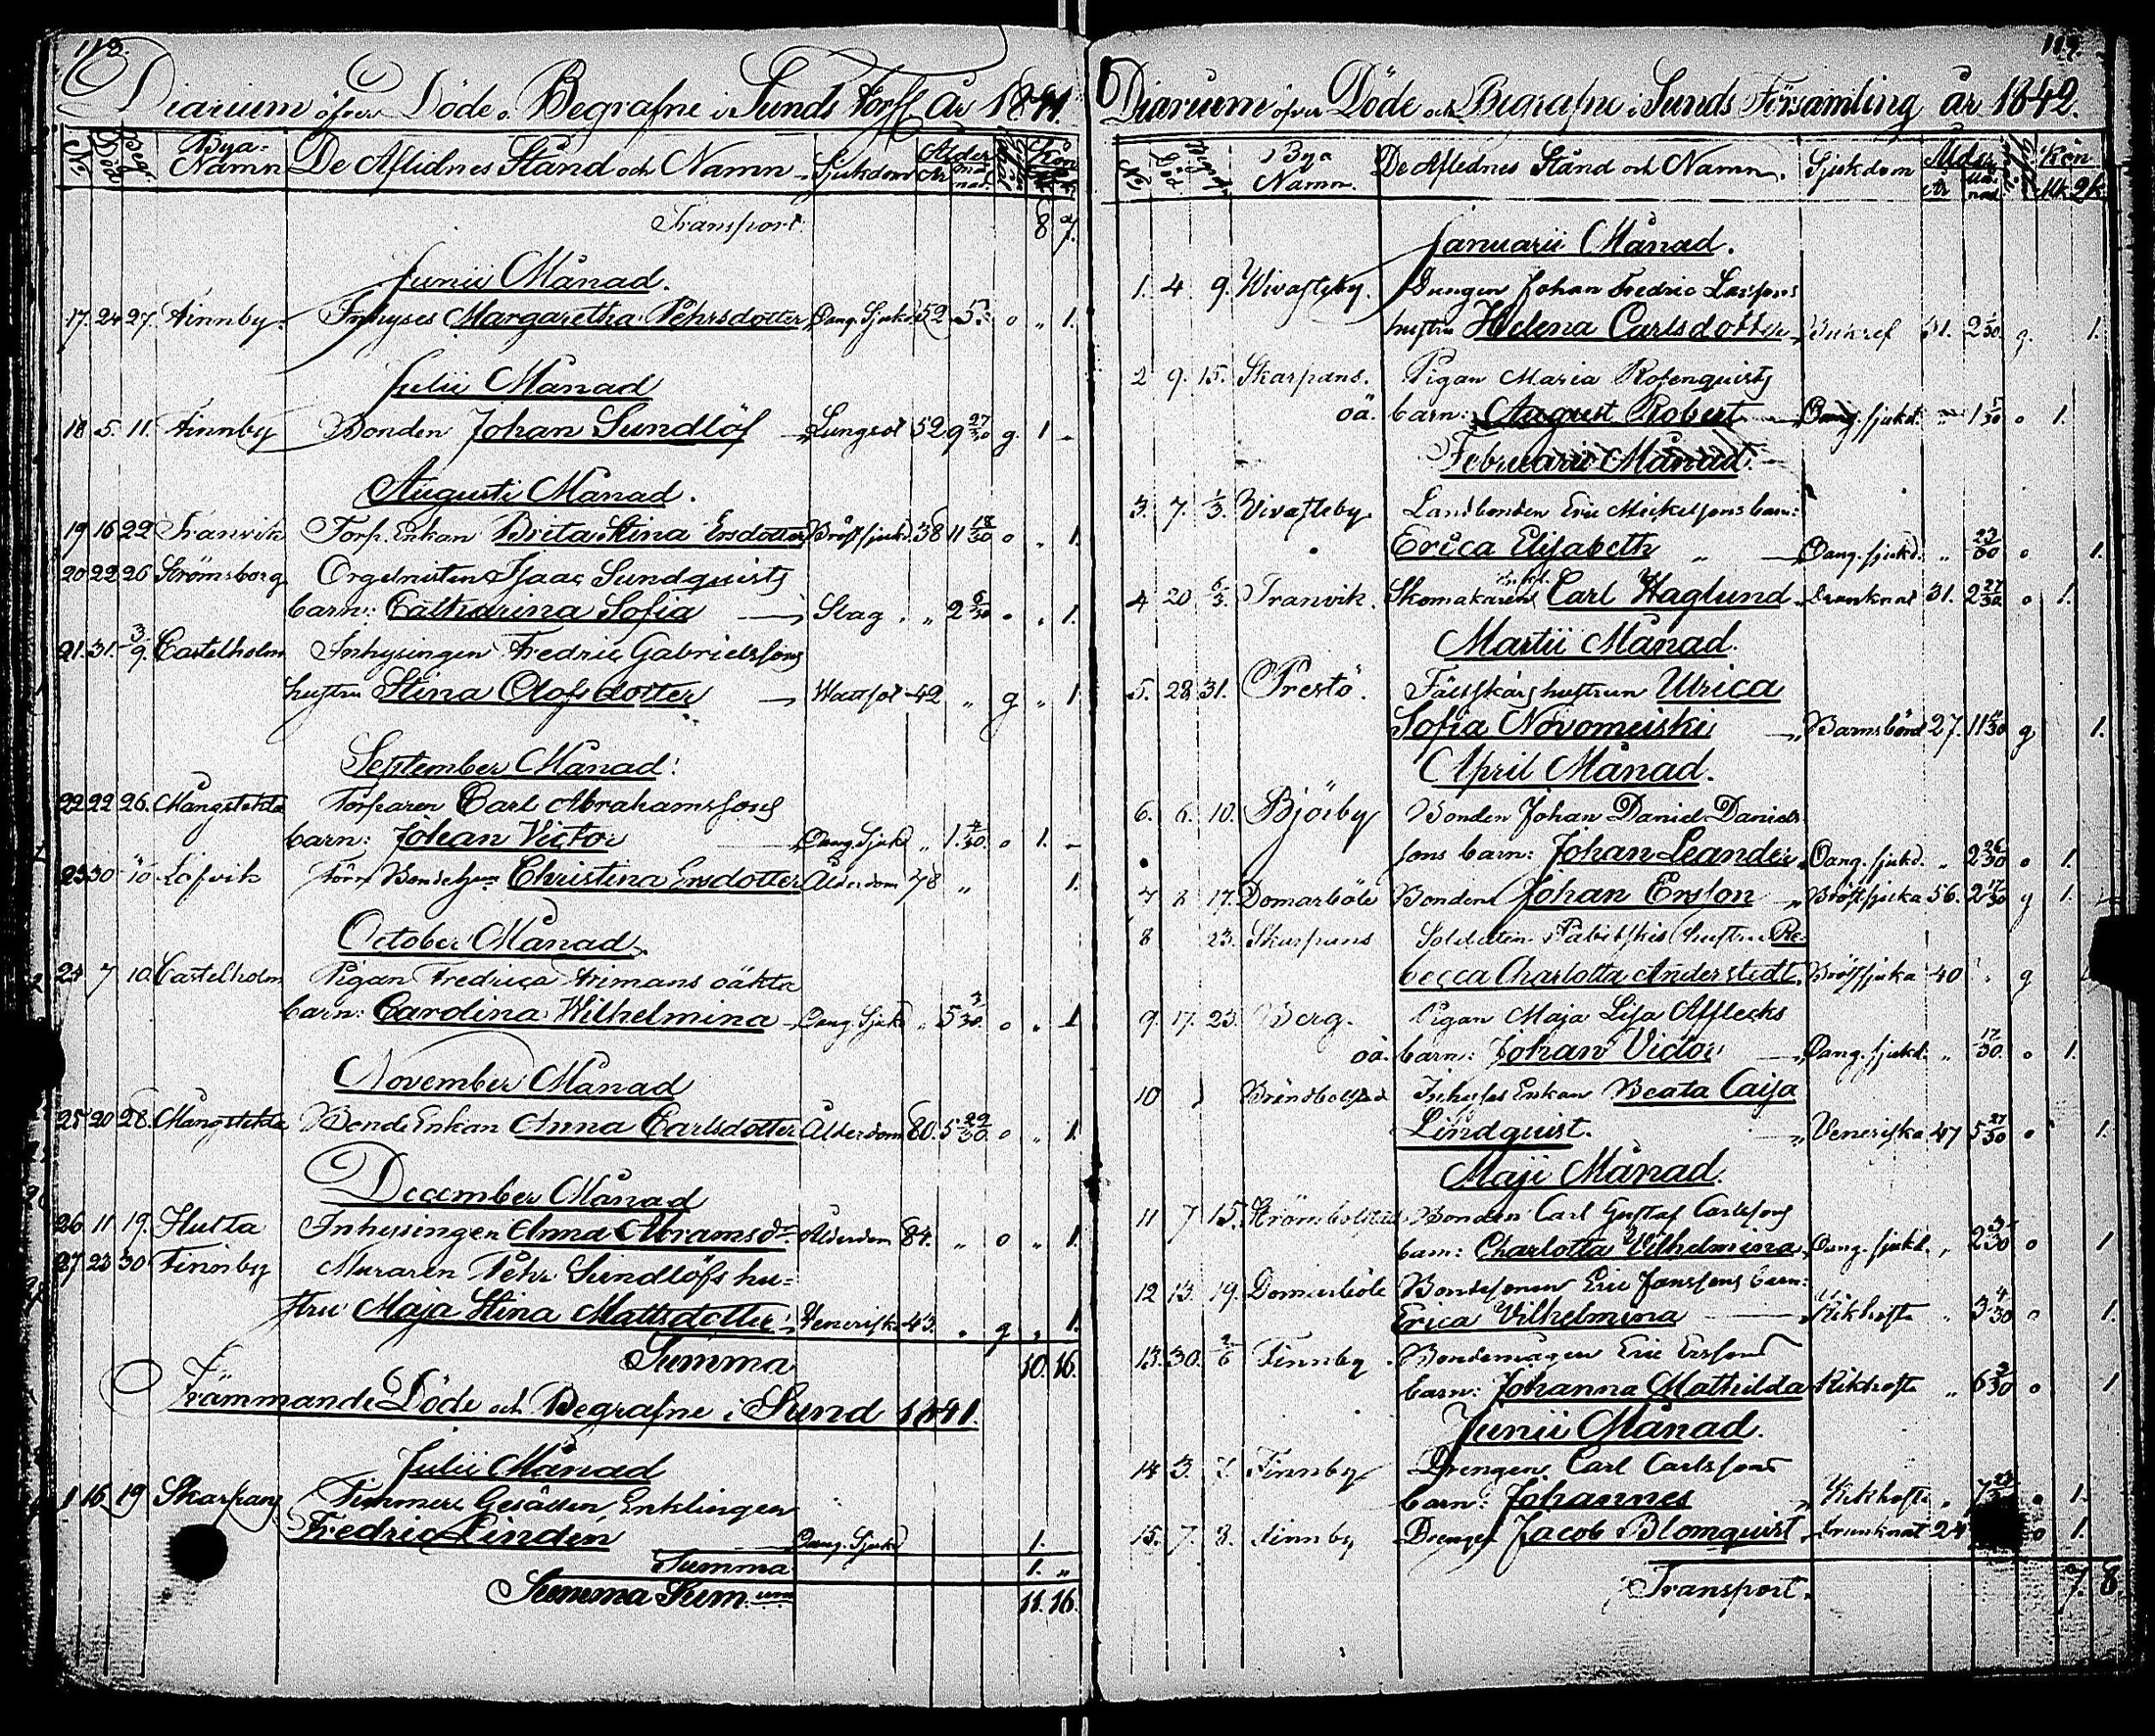 118.
Diarium öfver Döde o. Begrafne i Sunds Förs. År 1841.
No Död Begr. Bya-Namn De Aflidnes Stånd och Namn Sjukdom Ålder År månad Kön
Transport 8 7.
Junii Månad.
17. 24 27. Finnby. Inhyses Margaretha Pehrsdotter Oang. Sjukd. 52 5. o „ 1.
Julii Månad
18 5. 11. Finnby Bonden Johan Sundlöf Lungsot 52 9 27/30 g. 1 „
Augusti Månad.
19 16 22 Tranvik Torp. Enkan Brita Stina Ersdotter Bröstsjukd. 38 11 18/30 o „ 1.
20 22 26 Strömsborg Orgelnisten Isaac Sundquists
barn: Catharina Sofia Slag „ 2 6/30 o „ 1.
21. 31. 3/9. Castelholm Inhysingen Fredric Gabrielssons
hustru Stina Olofsdotter Wattsot 42 „ g „ 1
September Månad.
22 22 26. Mångstekta Torparen Carl Abrahamssons
barn: Johan Victor Oang. Sjukd „ 1. 4/30. o 1. „
23 30 Löfvik Förre Bondehu Christina Ersdotter Ålderdom 78 „ 1.
October Månad.
24 7 10. Castelholm Pigan Fredrica Frimans oäkta
barn: Carolina Wilhelmina Oang. Sjukd „ 5 3/30. o „ 1
November Månad
25 20 28. Mångstekta Bonde Enkan Anna Carlsdotter Ålderdom 80. 5 22/30. o „ 1
December Månad
26 11 19. Hulta Inhysingen Anna Abramsdr. Ålderdom 84. „ o „ 1.
27 23 30 Finnby Muraren Pehr Sundlöfs hu=
stru Maja Stina Mattsdotter Veneriska 43. „ g „ 1.
Summa 10. 16.
Främmande Döde och Begrafne i Sund 1841.
Julii Månad
1 16 19 Skarpans Timmers Gesällen, Enklingen
Fredric Linden Oang. Sjukd 1.
Summa 1. „
Summa Sum.um 11. 16.
119.
Diarium öfver Döde och Begrafne i Sunds Församling år 1842.
No Död Begraf. Bya Namn. De Aflidnes Stånd och Namn. Sjukdom Ålder År Månad Kön Mk. Qk.
Januarii Månad.
1. 4 9. Wivasteby. Drengen Johan Fredric Larssons
hustru Helena Carlsdotter 31. 2 1/30. g. 1.
2 9. 15. Skarpans. Pigan Maria Rosenquists
oä. barn: August Robert Oang. sjukd. „ 1 5/30 o 1.
Februarii Månad.
3. 7. 1/3. Vivasteby Landbonden Eric Mickelssons barn:
Erica Elisabeth „ Oang. sjukd. „ 23/30 o 1.
4 20 6/3. Tranvik. Skomakaren Carl Haglund Drunknat 31. 2 27/30 o 1.
Martii Månad.
5. 28 31. Prestö. Fältskärs hustrun Ulrica
Sofia Novomeiski Barnsbörd 27. 11 g 1.
April Månad.
6. 6. 10. Björby Bonden Johan Daniel Daniels
sons barn: Johan Leander Oang. sjukd. „ 2 26/30 o 1.
7 8 17. Domarböle Bonden Johan Erson Bröstsjuka 56. 2 17/30 g 1.
8 23. Skarpans Soldaten hustru Re-
becca Charlotta Anderstedt. Bröstsjuka 40 „ g 1
9. 17. 23. Berg. Pigan Maja Lisa Afflecks
oä. barn: Johan Victor Oang. sjukd. „ 17/30. o 1.
10 Brändbolstad Inhyses Enkan Beata Caisa
Lindquist. Veneriska 47 5 27/30 o 1.
Maji Månad.
11 7 15. Strömbolstad Bonden Carl Gustaf Carlssons
barn: Charlotta Vilhelmina Oang. sjukd. „ 2 3/30 o 1
12 13. 19. Domarböle Bondesonen Eric Janssons barn:
Erica Vilhelmina Kikhosta „ 3 4/30 o 1.
13. 30. 2/6 Finnby. Bondemågen Eric Erssons
barn: Johanna Mathilda Kikhosta „ 6 3/30 o 1
Junii Månad.
14 3. 7. Finnby Drengen Carl Carlssons
barn: Johannes Kikhosta „ 7 o 1.
15. 7. 8. Finnby Drengen Jacob Blomquist Drunknat 24 o 1.
Transport. 7. 8